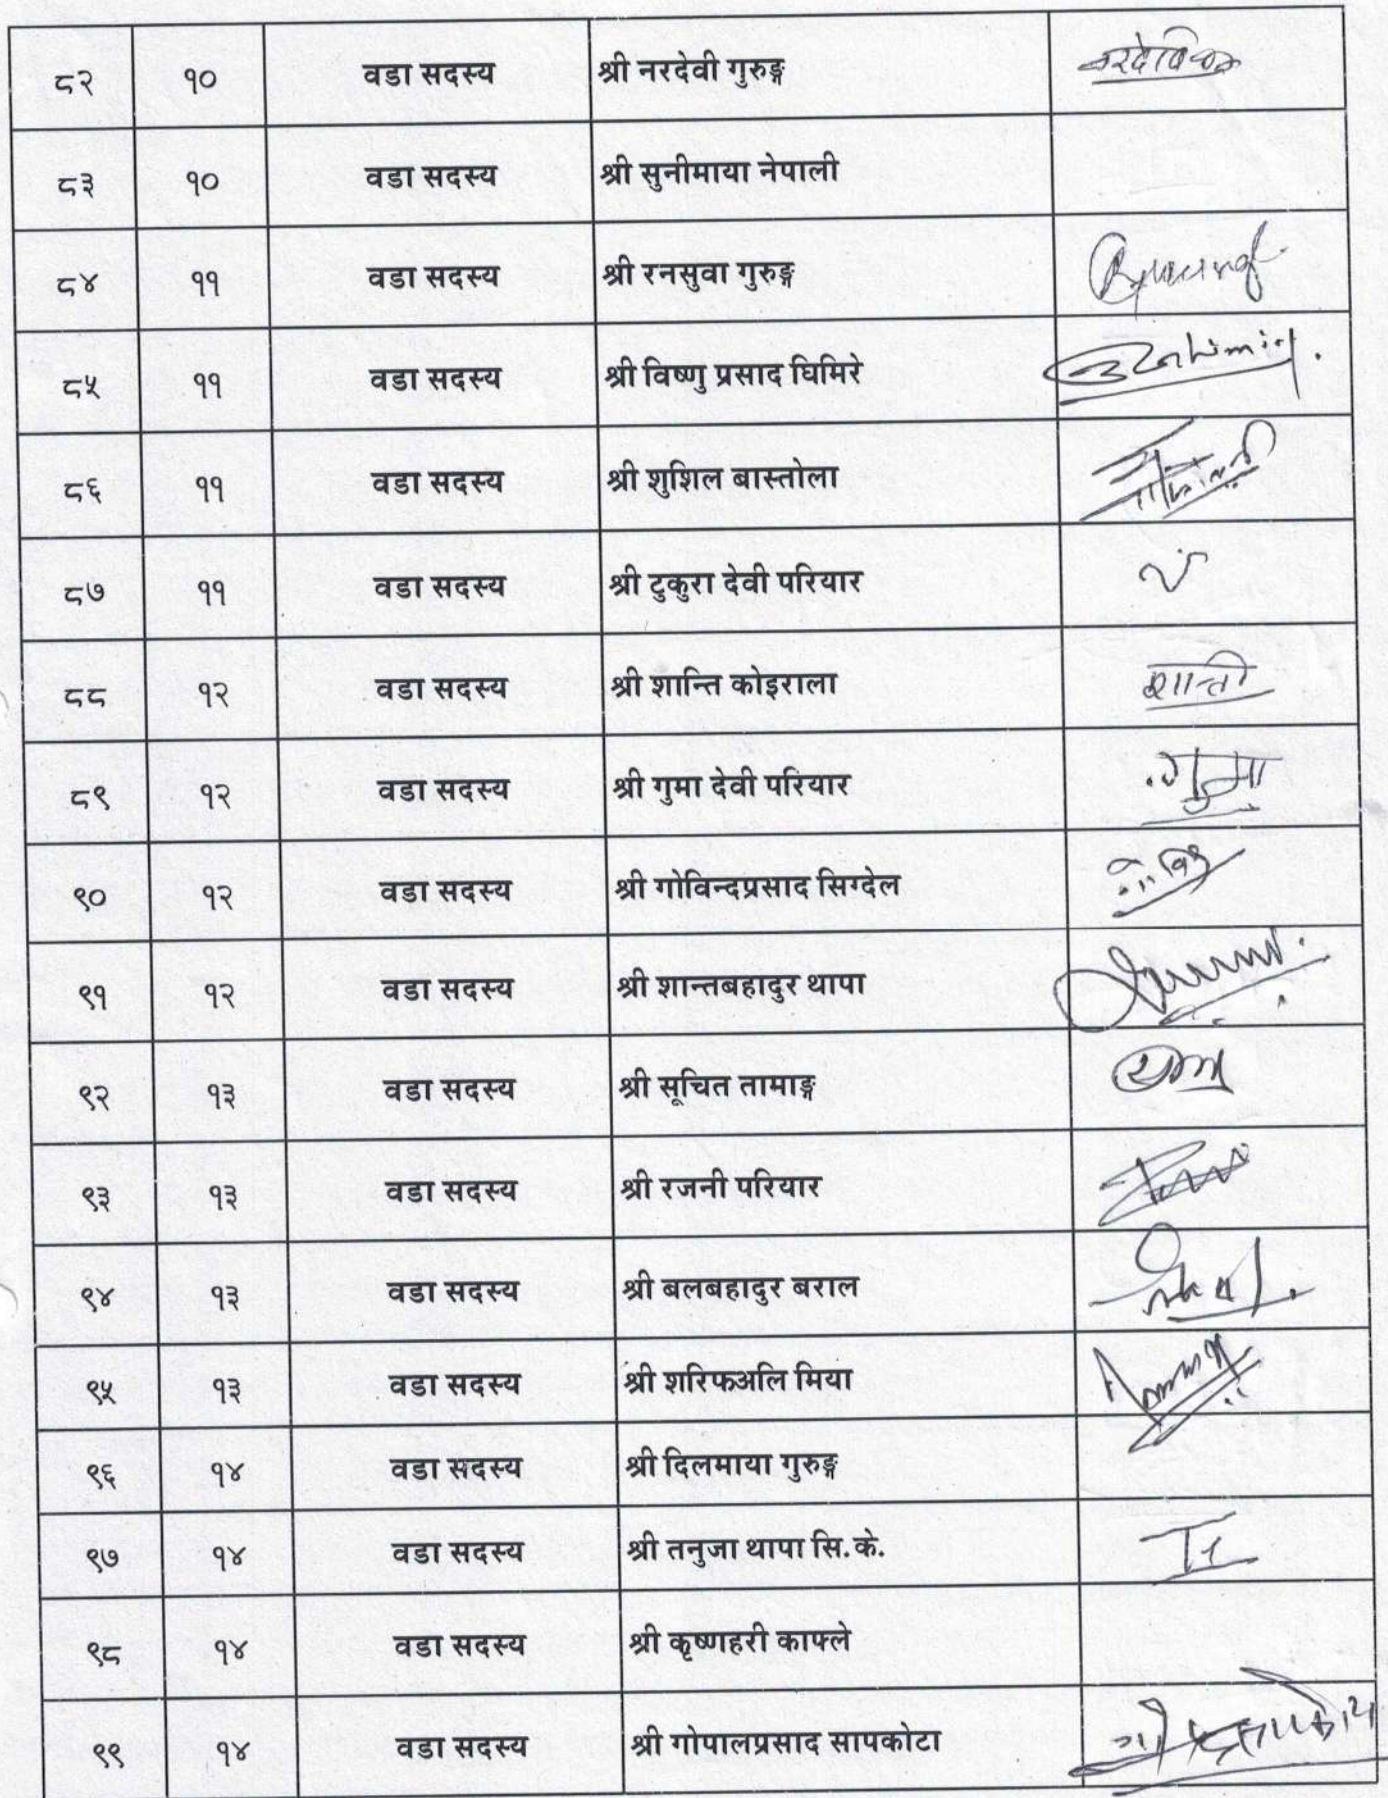 ८२ १० वडा सदस्य श्री नरदेवी गुरुङ्ग
८३ १० वडा सदस्य श्री सुनीमाया नेपाली
८४ ११ वडा सदस्य श्री रनसुवा गुरुङ्ग
८५ ११ वडा सदस्य श्री विष्णु प्रसाद घिमिरे
८६ ११ वडा सदस्य श्री शुशिल बास्तोला
८७ ११ वडा सदस्य श्री टुकुरा देवी परियार
८८ १२ वडा सदस्य श्री शान्ति कोइराला शान्ती
८९ १२ वडा सदस्य श्री गुमा देवी परियार गुमा
९० १२ वडा सदस्य श्री गोविन्दप्रसाद सिग्देल
९१ १२ वडा सदस्य श्री शान्तबहादुर थापा
९२ १३ वडा सदस्य श्री सूचित तामाङ्ग
९३ १३ वडा सदस्य श्री रजनी परियार
९४ १३ वडा सदस्य श्री बलबहादुर बराल
९५ १३ वडा सदस्य श्री शरिफअलि मिया
९६ १४ वडा सदस्य श्री दिलमाया गुरुङ्ग
९७ १४ वडा सदस्य श्री तनुजा थापा सि.के.
९८ १४ वडा सदस्य श्री कृष्णहरी काफ्ले
९९ १४ वडा सदस्य श्री गोपालप्रसाद सापकोटा